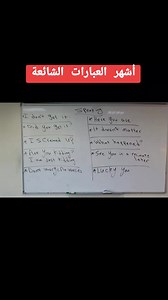 أشهر العبارات الشائعة
I don't get it
Did you get it?
I screwed up
Are you kidding?
I am just kidding
Here you are
It doesn't matter
What happened?
See you in a minute
later
Lucky you